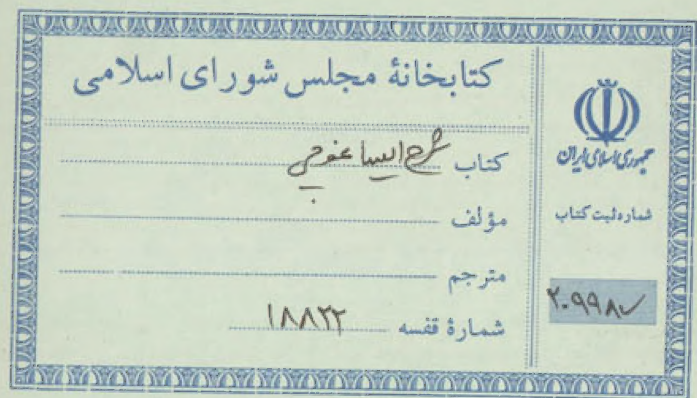 کتابخانهٔ مجلس شورای اسلامی
کتاب شرح ایساغوجی
مؤلف
مترجم
شمارهٔ قفسه ۱۸۸۲۲
جمهوری اسلامی ایران
شماره ثبت کتاب
۲۰۹۹۸۷